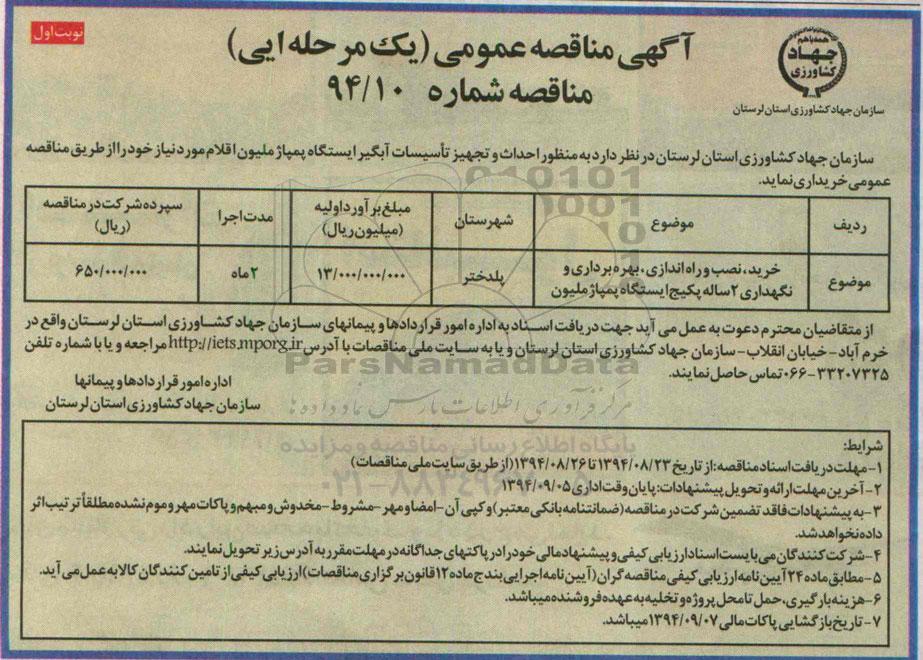 نوبت اول
آگهی مناقصه عمومی (یک مرحله ایی)
مناقصه شماره ۹۴/۱۰
همه با هم
جهاد
کشاورزی
سازمان جهاد کشاورزی استان لرستان
سازمان جهاد کشاورزی استان لرستان در نظر دارد به منظور احداث و تجهیز تأسیسات آبگیر ایستگاه پمپاژ ملیون اقلام مورد نیاز خود را از طریق مناقصه
عمومی خریداری نماید.
ردیف موضوع شهرستان مبلغ برآورد اولیه (میلیون ریال) مدت اجرا سپرده شرکت در مناقصه (ریال)
موضوع خرید، نصب و راه اندازی، بهره برداری و نگهداری ۲ ساله پکیج ایستگاه پمپاژ ملیون پلدختر ۱۳/۰۰۰/۰۰۰/۰۰۰ ۲ ماه ۶۵۰/۰۰۰/۰۰۰
از متقاضیان محترم دعوت به عمل می آید جهت دریافت اسناد به اداره امور قراردادها و پیمانهای سازمان جهاد کشاورزی استان لرستان واقع در
خرم آباد - خیابان انقلاب - سازمان جهاد کشاورزی استان لرستان و یا به سایت ملی مناقصات با آدرس http://iets.mporg.ir مراجعه و یا با شماره تلفن
۰۶۶-۳۳۲۰۷۳۲۵ تماس حاصل نمایند.
اداره امور قراردادها و پیمانها
سازمان جهاد کشاورزی استان لرستان
ParsNamadData
مرکز فرآوری اطلاعات پارس نماد داده ها
پایگاه اطلاع رسانی مناقصه و مزایده
شرایط:
۱- مهلت دریافت اسناد مناقصه: از تاریخ ۱۳۹۴/۰۸/۲۳ تا ۱۳۹۴/۰۸/۲۶ (از طریق سایت ملی مناقصات)
۲- آخرین مهلت ارائه و تحویل پیشنهادات: پایان وقت اداری ۱۳۹۴/۰۹/۰۵
۳- به پیشنهادات فاقد تضمین شرکت در مناقصه (ضمانتنامه بانکی معتبر) و کپی آن - امضا و مهر - مشروط - مخدوش و مبهم و پاکات مهر و موم نشده مطلقاً ترتیب اثر
داده نخواهد شد.
۴- شرکت کنندگان می بایست اسناد ارزیابی کیفی و پیشنهاد مالی خود را در پاکتهای جداگانه در مهلت مقرر به آدرس زیر تحویل نمایند.
۵- مطابق ماده ۲۴ آیین نامه ارزیابی کیفی مناقصه گران (آیین نامه اجرایی بند ج ماده ۱۲ قانون برگزاری مناقصات) ارزیابی کیفی از تامین کنندگان کالا به عمل می آید.
۶- هزینه بارگیری، حمل تا محل پروژه و تخلیه به عهده فروشنده میباشد.
۷- تاریخ بازگشایی پاکات مالی ۱۳۹۴/۰۹/۰۷ میباشد.